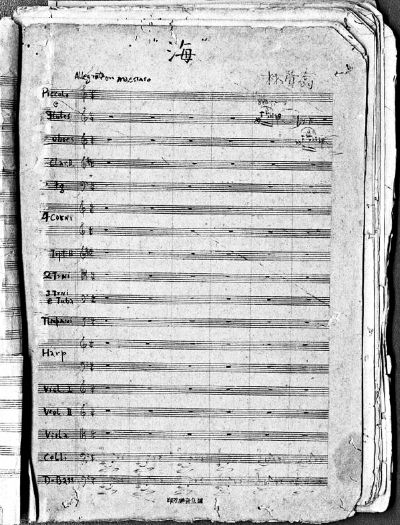 海
Allegretto ma maestoso
Piccolo
e
Flutes
Oboes
Clar. B
Fg
4 CORNI
Tpt. B
2 Tbni
Tuba
Timpani
Harp
Viol. I
Viol. II
Viola
Celli
D-Bass